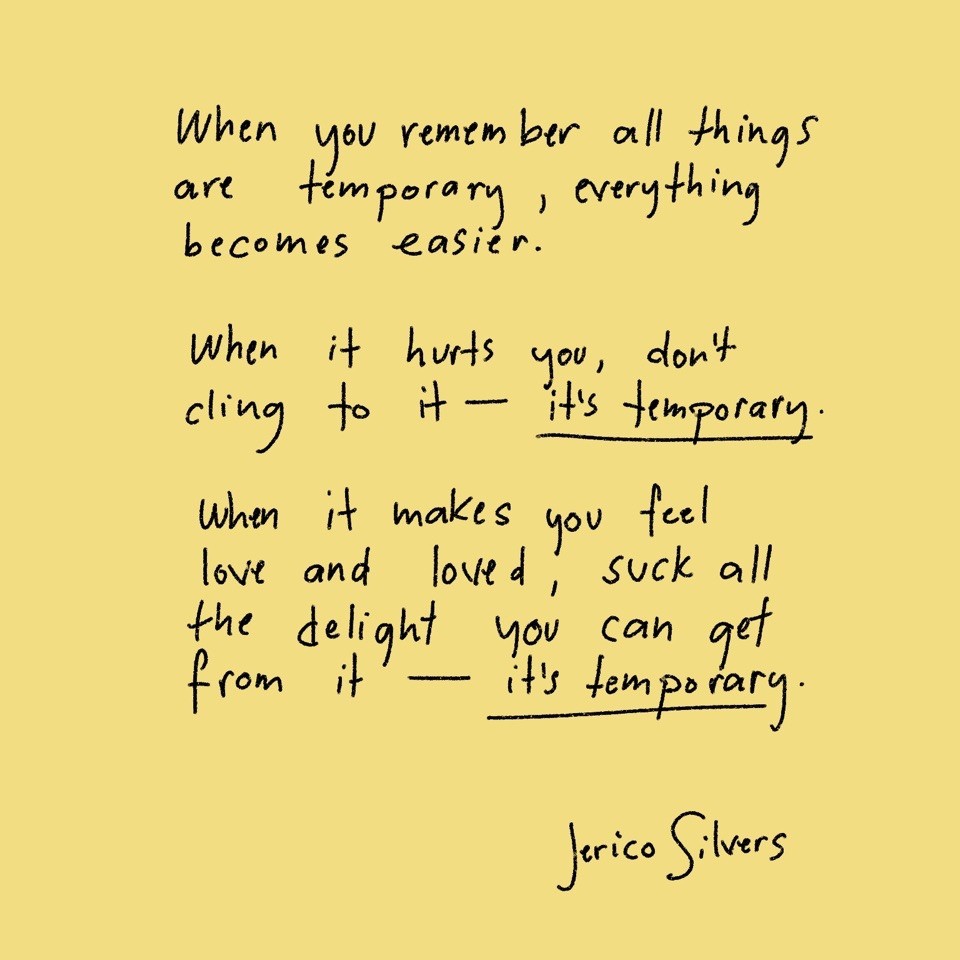 When you remember all things
are temporary, everything
becomes easier.
When it hurts you, don't
cling to it — it's temporary.
When it makes you feel
love and loved, suck all
the delight you can get
from it — it's temporary.
Jerico Silvers